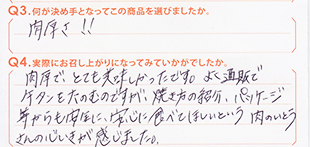 Q3.何が決め手となってこの商品を選びましたか。
肉厚さ!!
Q4.実際にお召し上がりになってみていかがでしたか。
肉厚で、とても美味しかったです。よく通販で
牛タンをたのむのですが、焼き方の紹介、パッケージ
等からも安全に、安心に食べてほしいという 肉のいとう
さんの心いきが感じました。